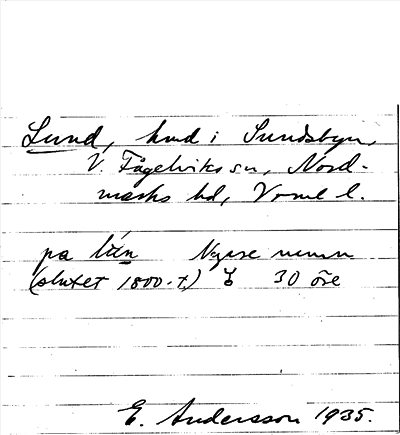 Lund, hmd i Sundsbyn,
V. Fågelviks sn, Nord-
marks hd, Vrml l.
pa lún Nyare namn
(slutet 1800-t.) 30 öre
E. Andersson 1935.